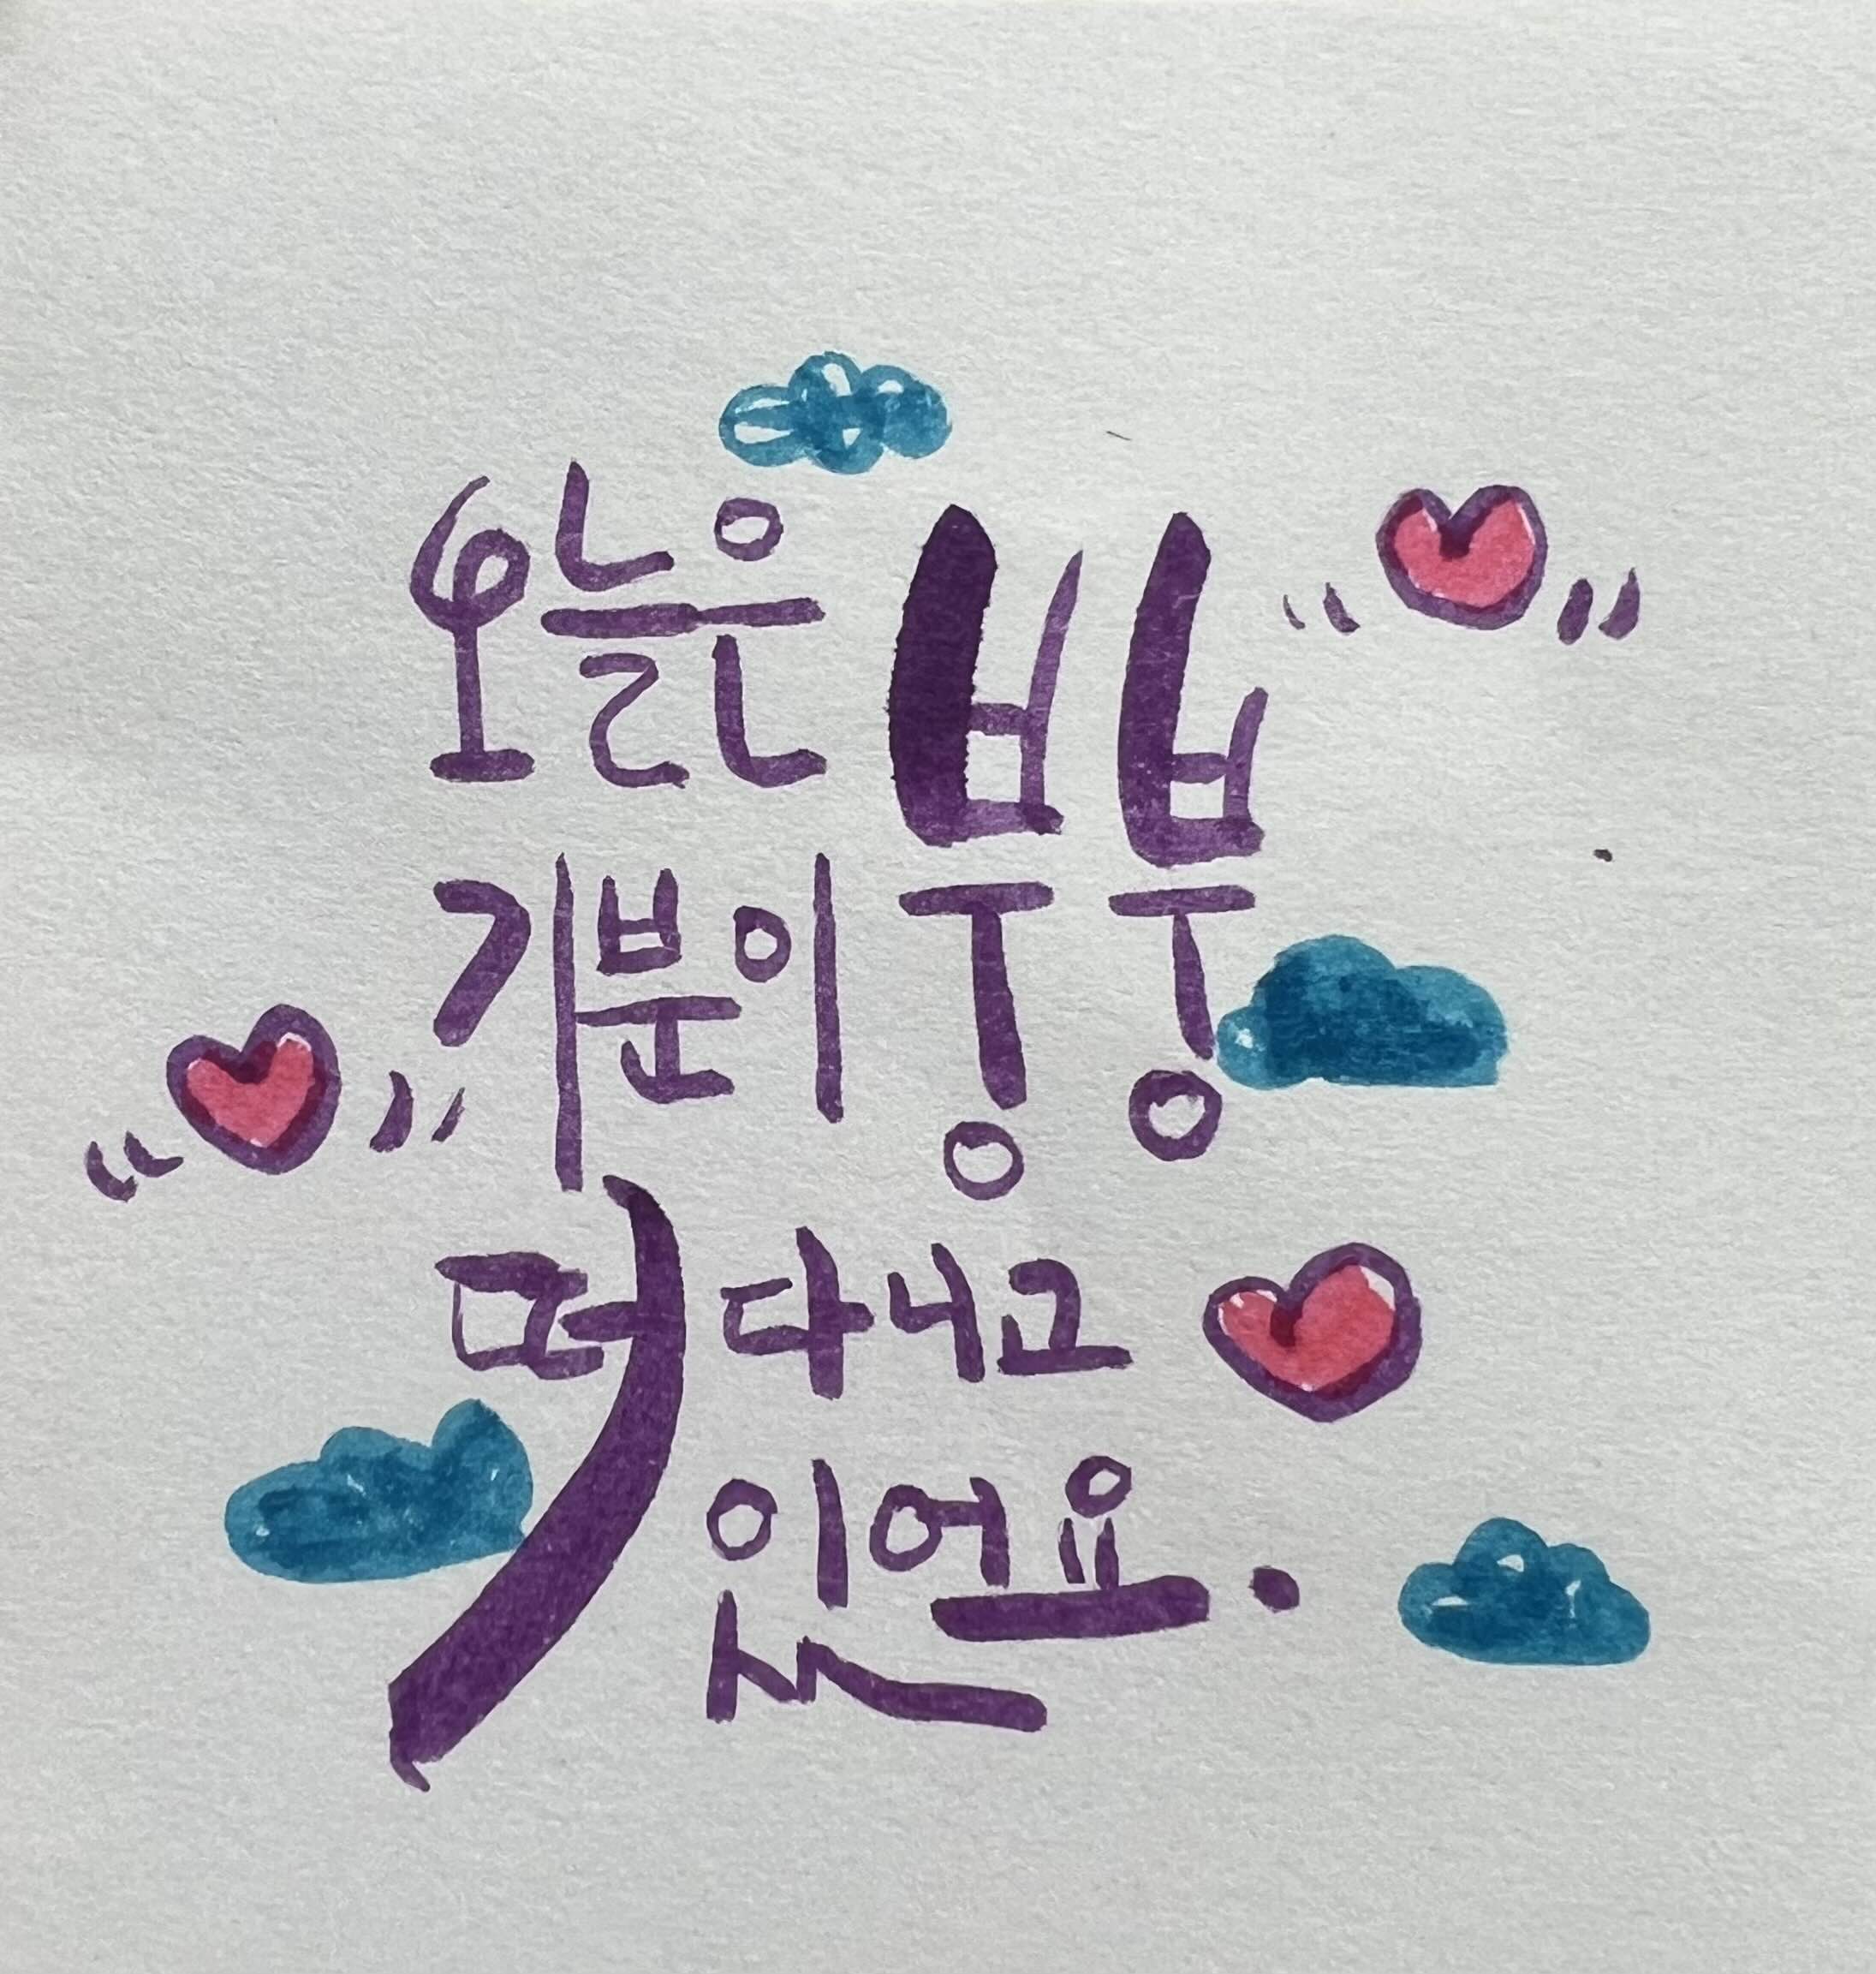 오늘은
기분이 붕붕
떠다니고
있어요.